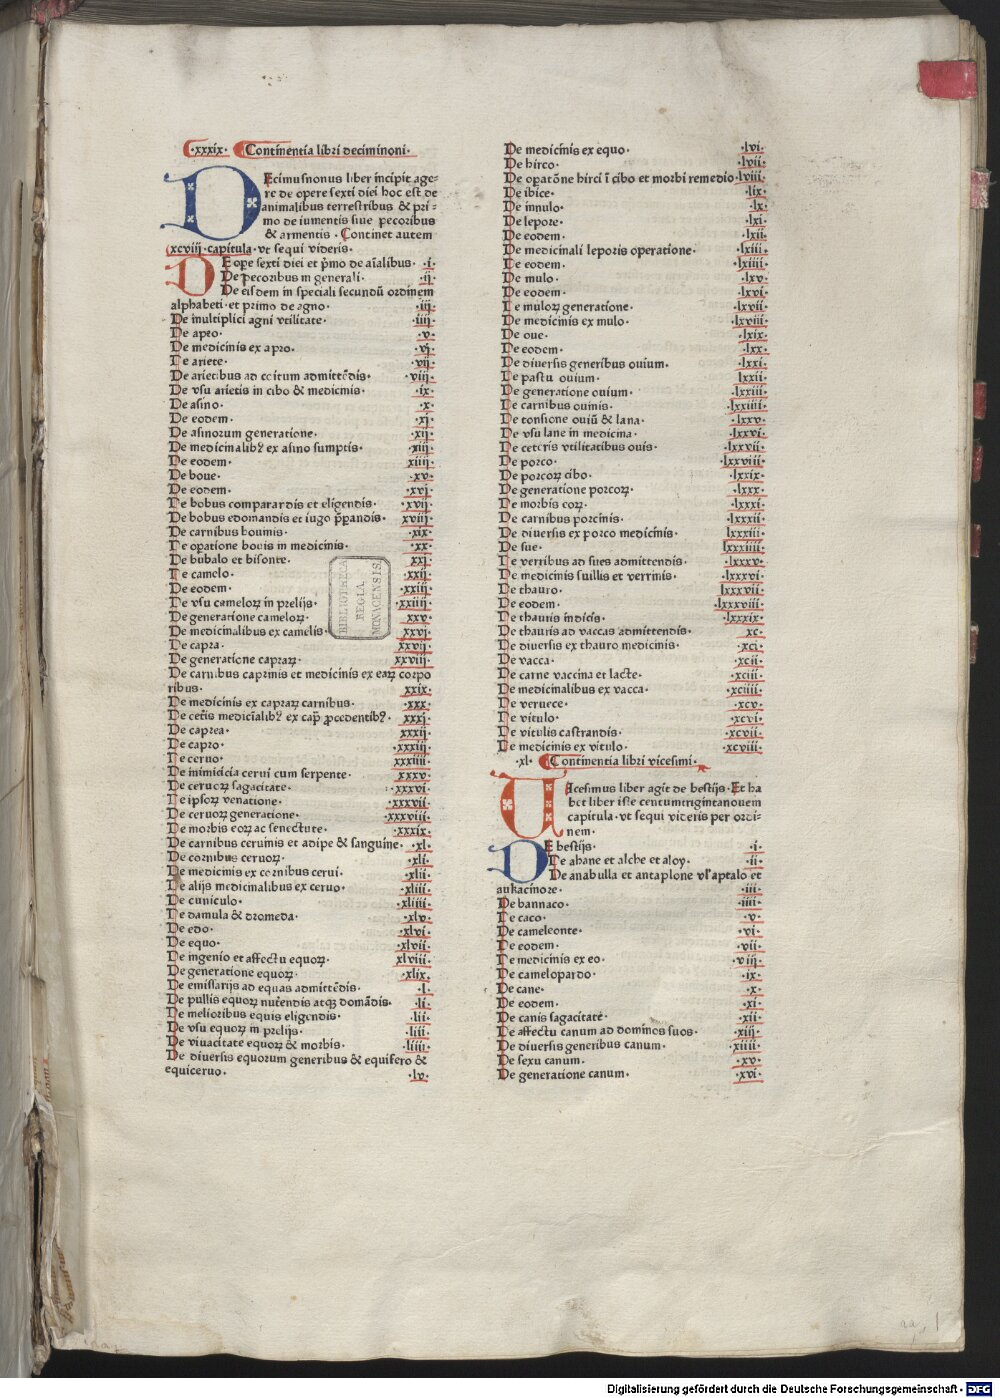 ·xxxix· Continentia libri deciminoni·
Decimusnonus liber incipit age⸗
re de opere sexti diei hoc est de
animalibus terrestribus & pri⸗
mo de iumentis siue pecoribus
& armentis · Continet autem
xcviij ·capitula · vt sequi videris·
De ope sexti diei et p̄mo de aīalibus· ·i·
De pecoribus in generali· ·ij·
De eisdem in speciali secundū ordinem
alphabeti · et primo de agno· ·iij·
De multiplici agni vtilitate· ·iiij·
De apro· ·v·
De medicinis ex apro· ·vj·
De ariete· ·vij·
De arietibus ad coitum admittēdis· ·viij·
De vsu arietis in cibo & medicinis· ·ix·
De asino· ·x·
De eodem· ·xj·
De asinorum generatione· ·xij·
De medicinalibꝰ ex asino sumptis· ·xiij·
De eodem· ·xiiij·
De boue· ·xv·
De eodem· ·xvj·
De bobus comparandis et eligendis· ·xvij·
De bobus edomandis et iugo p̄pandis· xviij·
De carnibus bouinis· ·xix·
De opatione bouis in medicinis· ·xx·
De bubalo et bisonte· xxj·
De camelo· xxij·
De eodem· ·xxiij·
De vsu cameloꝝ in prelijs· ·xxiiij·
De generatione cameloꝝ· xxv·
De medicinalibus ex camelis· xxvj·
De capra· xxvij·
De generatione capraꝝ· xxviij·
De carnibus caprinis et medicinis ex eaꝝ corpo
ribus· xxix·
De medicinis ex capraꝝ carnibus· ·xxx·
De cet̄is medicīalibꝰ ex cap̄ ꝓcedentibꝰ· xxxj·
De caprea· xxxij·
De capro· ·xxxiij·
De ceruo· xxxiiij·
De inimicicia cerui cum serpente· xxxv·
De ceruoꝝ sagacitate· ·xxxvi·
De ipsoꝝ venatione· ·xxxvii·
De ceruoꝝ generatione· ·xxxviii·
De morbis eoꝝ ac senectute· ·xxxix·
De carnibus ceruinis et adipe & sanguine· ·xl·
De cornibus ceruoꝝ· ·xli·
De medicinis ex cornibus cerui· ·xlii·
De alijs medicinalibus ex ceruo· ·xliii·
De cuniculo· ·xliiii·
De damula & dromeda· ·xlv·
De edo· ·xlvi·
De equo· ·xlvii·
De ingenio et affectu equoꝝ· xlviii·
De generatione equoꝝ· ·xlix·
De emissarijs ad equas admittēdis· ·l·
De pullis equoꝝ nut̄iendis atqꝫ domādis· ·li·
De melioribus equis eligendis· ·lii·
De vsu equoꝝ in prelijs· ·liii·
De viuacitate equoꝝ & morbis· ·liiii·
De diuersis equorum generibus & equifero &
equiceruo· ·lv·
BIBLIOTHECA
REGIA
MONACENSIS
De medicinis ex equo· ·lvi·
De hirco· ·lvii·
De opatōne hirci ī cibo et morbi remedio·lviii·
De ibice· ·lix·
De innulo· ·lx·
De lepore· ·lxi·
De eodem· ·lxii·
De medicinali leporis operatione· ·lxiii·
De eodem· ·lxiiii·
De mulo· ·lxv·
De eodem· ·lxvi·
De muloꝝ generatione· ·lxvii·
De medicinis ex mulo· ·lxviii·
De oue· ·lxix·
De eodem· ·lxx·
De diuersis generibus ouium· ·lxxi·
De pastu ouium· lxxii·
De generatione ouium· ·lxxiii·
De carnibus ouinis· ·lxxiiii·
De tonsione ouiū & lana· ·lxxv·
De vsu lane in medicina· ·lxxvi·
De ceteris vtilitatibus ouis· ·lxxvii·
De porco· ·lxxviii·
De porcoꝝ cibo· ·lxxix·
De generatione porcoꝝ· ·lxxx·
De morbis eoꝝ· ·lxxxi·
De carnibus porcinis· ·lxxxii·
De diuersis ex porco medicinis· ·lxxxiii·
De sue· lxxxiiii·
De verribus ad sues admittendis· ·lxxxv·
De medicinis suillis et verrinis· ·lxxxvi·
De thauro· lxxxvii·
De eodem· ·lxxxviii·
De thauris indicis· ·lxxxix·
De thauris ad vaccas admittendis· xc·
De diuersis ex thauro medicinis· ·xci·
De vacca· ·xcii·
De carne vaccina et lacte· ·xciii·
De medicinalibus ex vacca· ·xciiii·
De veruece· ·xcv·
De vitulo· ·xcvi·
De vitulis castrandis· ·xcvii·
De medicinis ex vitulo· ·xcviii·
·xl· Continentia libri vicesimi·
Uicesimus liber agit de bestijs· Et ha
bet liber iste centumtrigintanouem
capitula · vt sequi videris per ordi⸗
nem·
De bestijs· ·i·
De ahane et alche et aloy· ·ii·
De anabulla et antaplone vl' aptalo et
aukacinore· ·iii·
De bannaco· ·iiii·
De caco· ·v·
De cameleonte· ·vi·
De eodem· ·vii·
De medicinis ex eo· ·viii·
De camelopardo· ·ix·
De cane· ·x·
De eodem· ·xi·
De canis sagacitate· ·xii·
De affectu canum ad dominos suos· ·xiii·
De diuersis generibus canum· ·xiiii·
De sexu canum· ·xv·
De generatione canum· ·xvi·
Digitalisierung gefördert durch die Deutsche Forschungsgemeinschaft - DFG